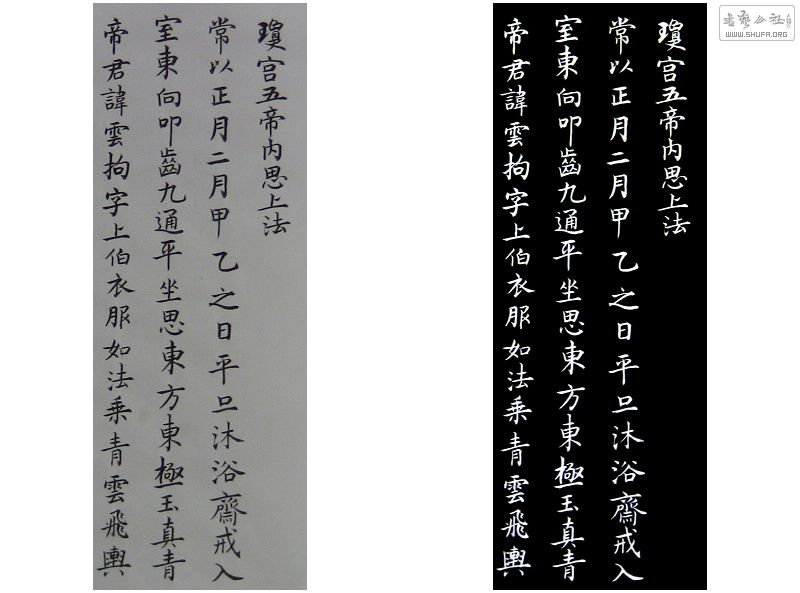 瓊宫五帝内思上法
常以正月二月甲乙之日平旦沐浴齋戒入
室東向叩齒九通平坐思東方東極玉真青
帝君諱雲拘字上伯衣服如法乘青雲飛輿
瓊宫五帝内思上法
常以正月二月甲乙之日平旦沐浴齋戒入
室東向叩齒九通平坐思東方東極玉真青
帝君諱雲拘字上伯衣服如法乘青雲飛輿
WWW.SHUFA.ORG